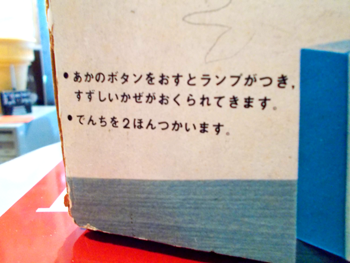 •あかのボタンをおすとランプがつき,
すずしいかぜがおくられてきます。
•でんちを2ほんつかいます。